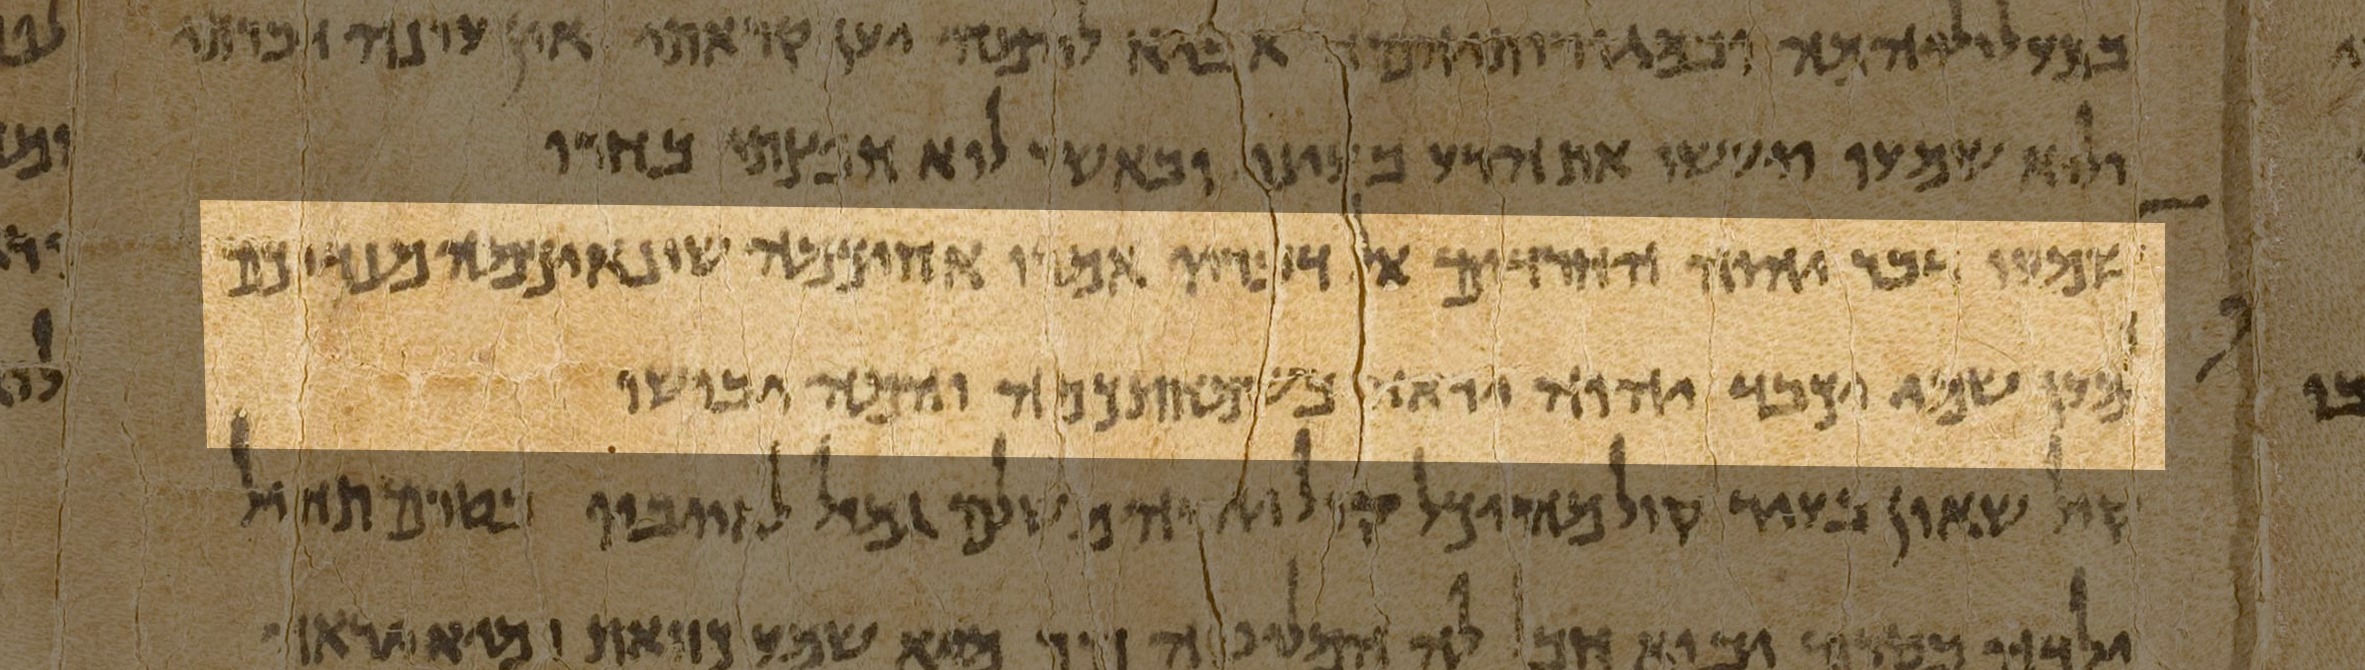 בתעלוליהמה ובמגורותיהמה אביא להמה יען קראתי ואין עונה דברתי
ולוא שמעו ויעשו את הרע בעיני ובאשר לוא חפצתי בחרו
שמעו דבר יהוה החרדים אל דבריו אמרו אחיכמה שונאיכמה מנדיכם
למען שמי יכבד יהוה יראה בשמחתכמה והמה יבושו
קול שאון בעיר קול מהיכל קול יהוה משלם גמול לאויביו בטרם תחיל
ילדה בטרם יבוא חבל לה והמליטה זכר מיא שמע כזואת ומיא ראה